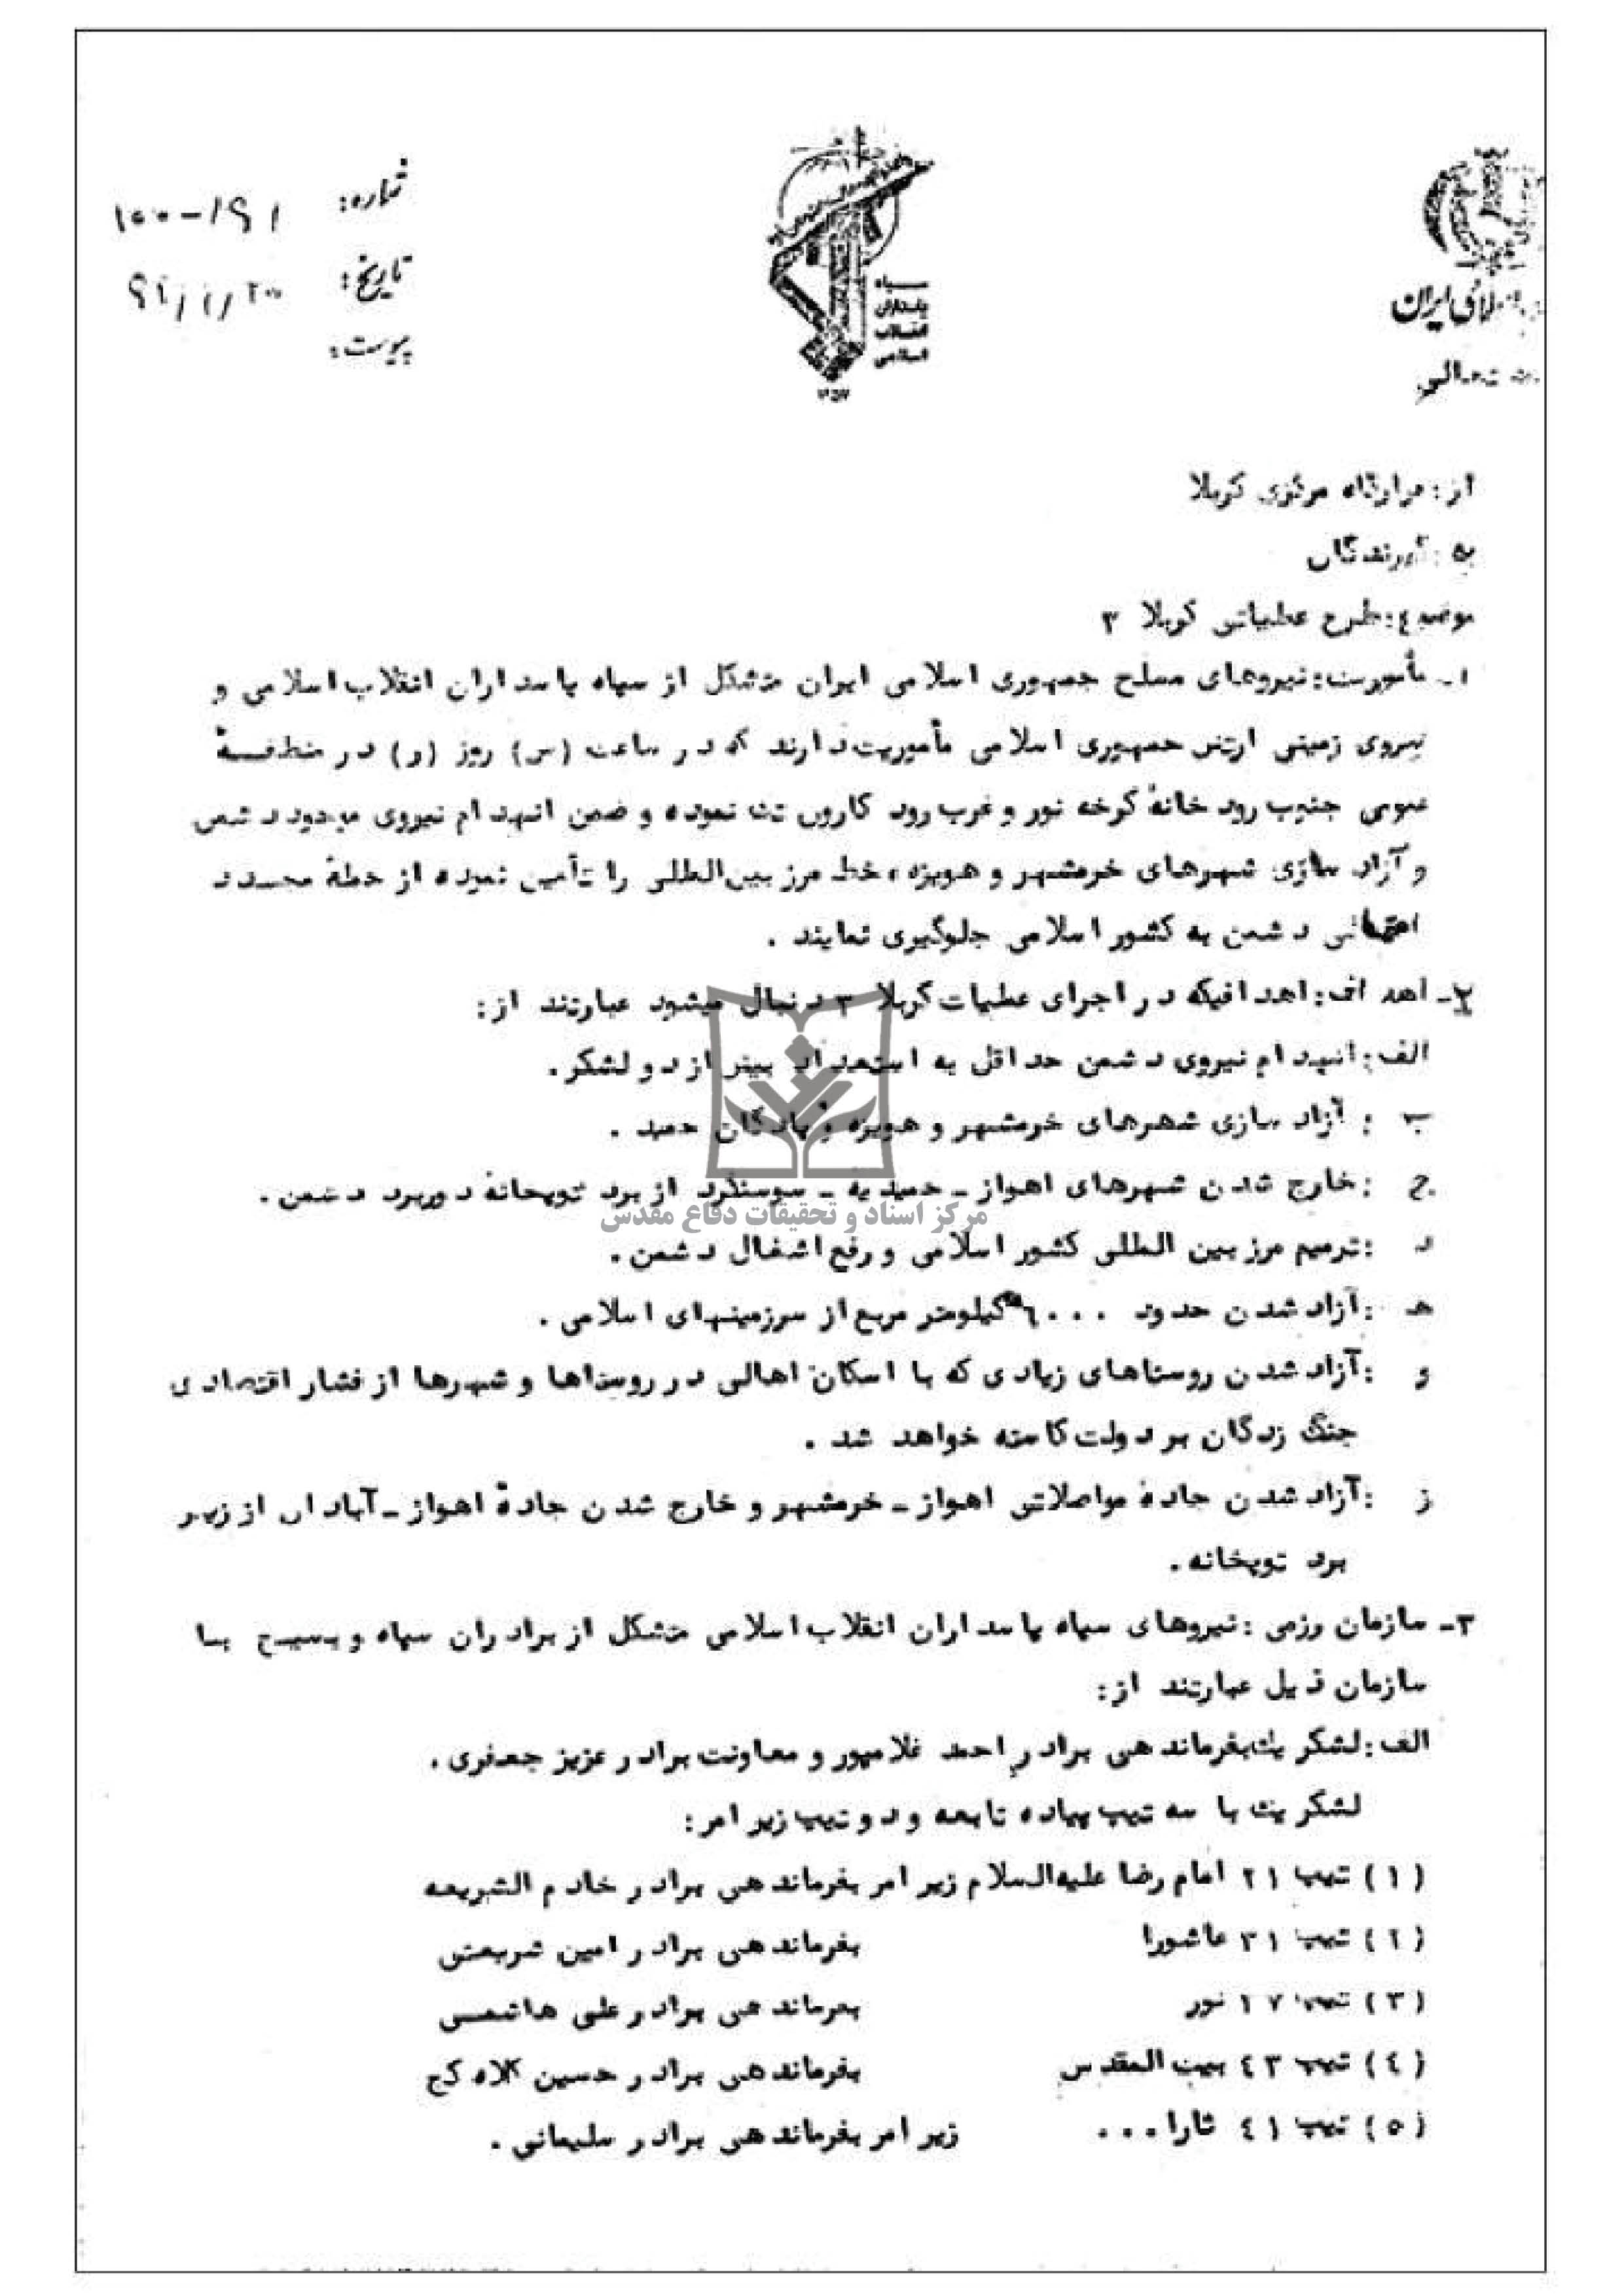 شماره: ۱۰۰-۱۹۱
تاریخ:
پیوست:
سپاه
پاسداران
انقلاب
اسلامی
اسلامی ایران
تعالی
از: قرارگاه مرکزی کربلا
به: گیرندگان
موضوع: طرح عملیاتی کربلا ۳
۱- مأموریت: نیروهای مسلح جمهوری اسلامی ایران متشکل از سپاه پاسداران انقلاب اسلامی و
نیروی زمینی ارتش جمهوری اسلامی مأموریت دارند که در ساعت (س) روز (ر) در منطقـــهٔ
عمومی جنوب رودخانهٔ کرخه نور و غرب رود کارون تک نموده و ضمن انهدام نیروی موجود دشمن
و آزاد سازی شهرهای خرمشهر و هویزه، خط مرز بین‌المللی را تأمین نموده از حملهٔ مجـــدد
احتمالی دشمن به کشور اسلامی جلوگیری نمایند.
۲- اهداف: اهدافیکه در اجرای عملیات کربلا ۳ دنبال میشود عبارتند از:
الف: انهدام نیروی دشمن حداقل به استعداد بیش از دو لشکر.
ب : آزاد سازی شهرهای خرمشهر و هویزه و پادگان حمید.
ج : خارج شدن شهرهای اهواز - حمیدیه - سوسنگرد از برد توپخانهٔ دوربرد دشمن.
مرکز اسناد و تحقیقات دفاع مقدس
د : ترمیم مرز بین المللی کشور اسلامی و رفع اشغال دشمن.
هـ : آزاد شدن حدود ۶۰۰۰ کیلومتر مربع از سرزمینهای اسلامی.
و : آزاد شدن روستاهای زیادی که با اسکان اهالی در روستاها و شهرها از فشار اقتصادی
جنگ زدگان بر دولت کاسته خواهد شد.
ز : آزاد شدن جادهٔ مواصلاتی اهواز - خرمشهر و خارج شدن جادهٔ اهواز - آبادان از زیـر
برد توپخانه.
۳- سازمان رزمی: نیروهای سپاه پاسداران انقلاب اسلامی متشکل از برادران سپاه و بسیـج بـا
سازمان ذیل عبارتند از:
الف: لشکر یک بفرماندهی برادر احمد غلامپور و معاونت برادر عزیز جعفری.
لشکر یک با سه تیپ پیاده تابعه و دو تیپ زیر امر:
(۱) تیپ ۲۱ امام رضا علیه‌السلام زیر امر بفرماندهی برادر خادم الشریعه
(۲) تیپ ۳۱ عاشورا بفرماندهی برادر امین شریعتی
(۳) تیپ ۱۷ نور بفرماندهی برادر علی هاشمـی
(۴) تیپ ۴۳ بیت المقدس بفرماندهی برادر حسین کلاه کج
(۵) تیپ ۴۱ ثارا... زیر امر بفرماندهی برادر سلیمانی.